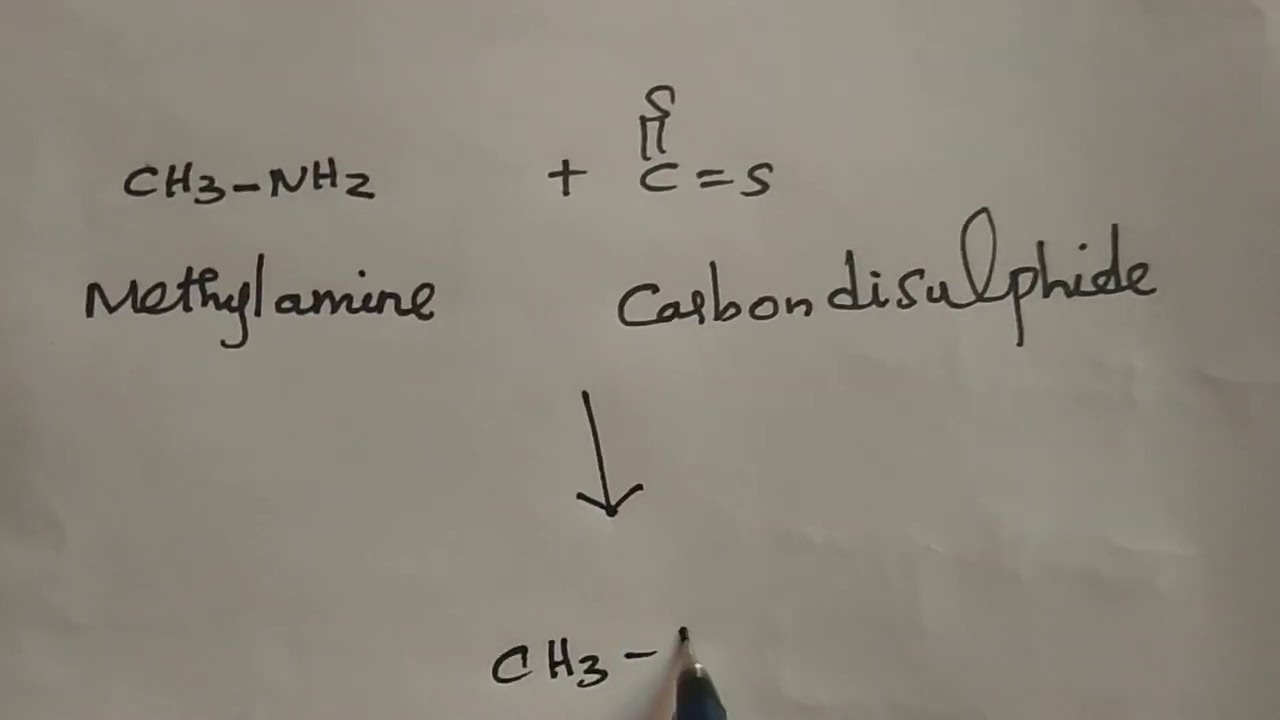 S
||
CH3-NH2 + C=S
Methylamine Carbondisulphide
↓
CH3-